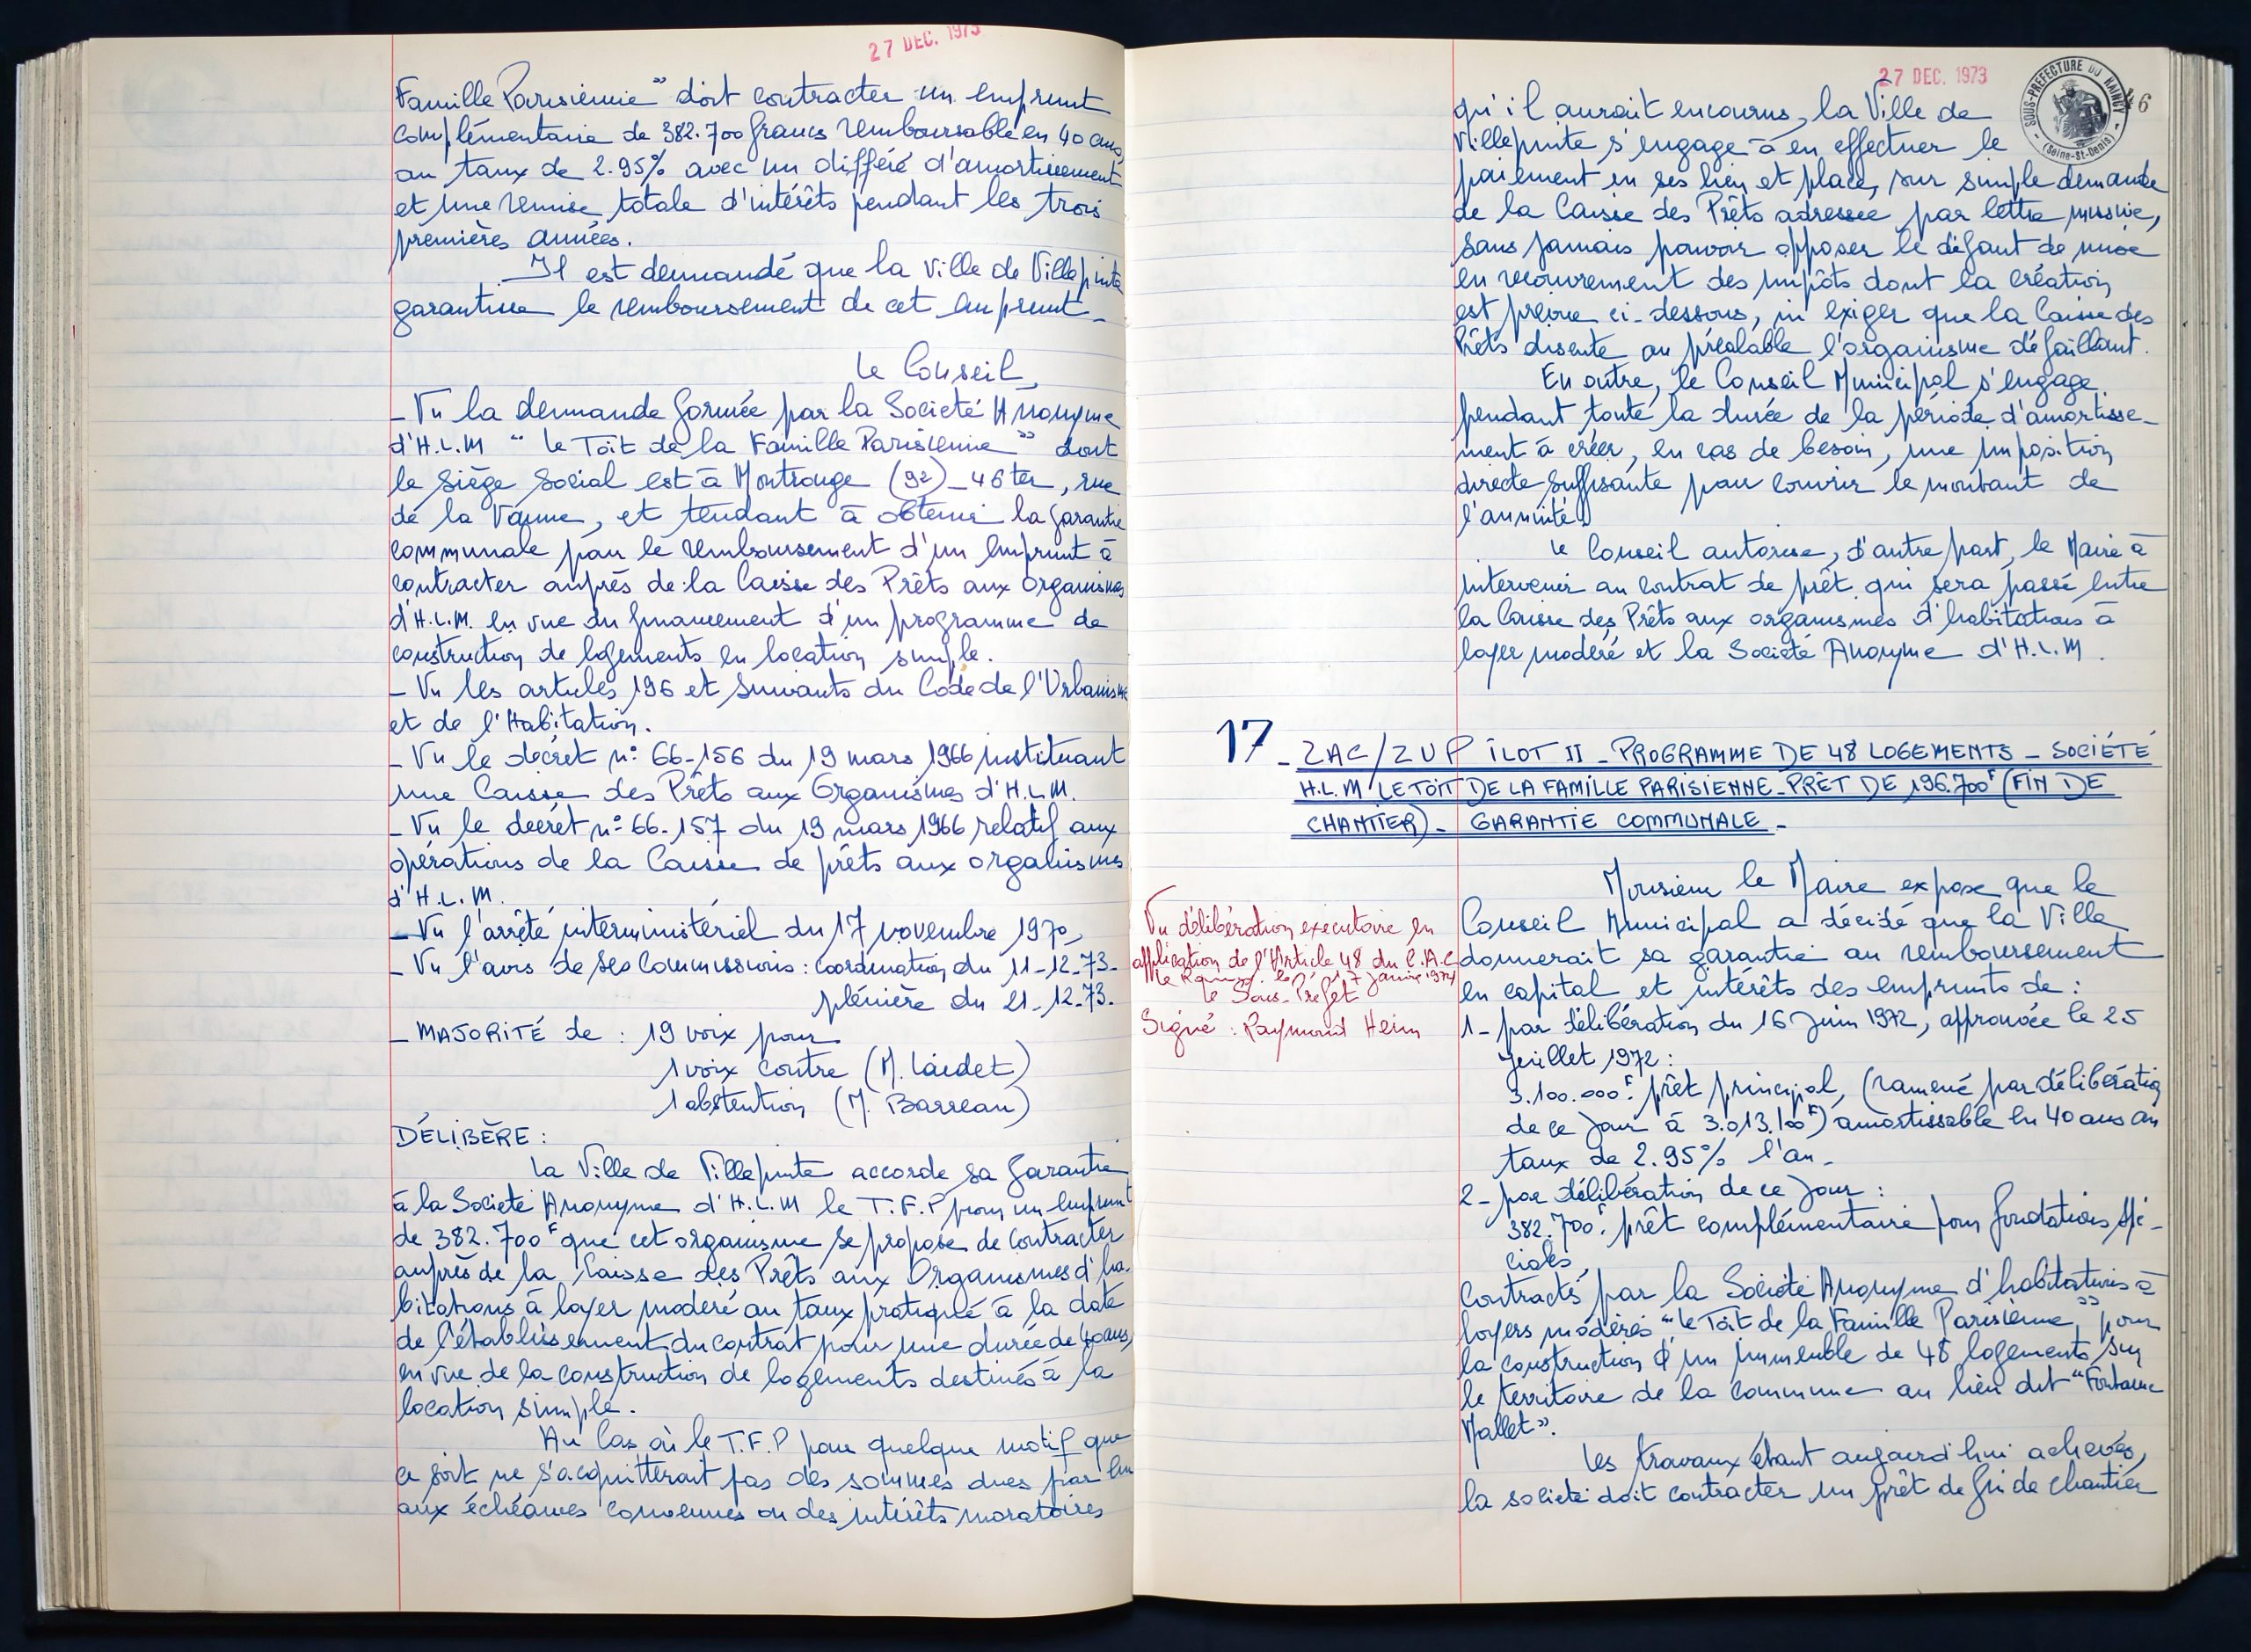 27 DEC. 1973
Famille Parisienne" doit contracter un emprunt
complémentaire de 382.700 francs remboursable en 40 ans,
au taux de 2.95% avec un différé d'amortissement
et une remise totale d'intérêts pendant les trois
premières années.
Il est demandé que la Ville de Villepinte
garantisse le remboursement de cet emprunt_
Le Conseil,
_ Vu la demande formée par la Société Anonyme
d'H.L.M " Le Toit de la Famille Parisienne " dont
le Siège Social est à Montrouge (92)_ 46 ter, rue
de la Vanne, et tendant à obtenir la garantie
communale pour le remboursement d'un emprunt à
contracter auprès de la Caisse des Prêts aux Organismes
d'H.L.M. en vue du financement d'un programme de
construction de logements en location simple.
_ Vu les articles 196 et suivants du Code de l'Urbanisme
et de l'Habitation.
_ Vu le décret n° 66-156 du 19 mars 1966 instituant
une Caisse des Prêts aux Organismes d'H.L.M.
_ Vu le décret n° 66-157 du 19 mars 1966 relatif aux
opérations de la Caisse de prêts aux organismes
d'H.L.M.
_ Vu l'arrêté interministériel du 17 novembre 1970,
_ Vu l'avis de ses Commissions : coordination du 11-12-73-
plénière du 21-12-73-
_ MAJORITÉ de : 19 voix pour
1 voix contre (M. Laidet)
1 abstention (M. Barreau)
DÉLIBÈRE :
La Ville de Villepinte accorde sa garantie
à la Société Anonyme d'H.L.M le T.F.P pour un emprunt
de 382.700F que cet organisme se propose de contracter
auprès de la Caisse des Prêts aux Organismes d'ha-
bitations à loyer modéré au taux pratiqué à la date
de l'établissement du contrat pour une durée de 40 ans,
en vue de la construction de logements destinés à la
location simple.
Au cas où le T.F.P pour quelque motif que
ce soit ne s'acquitterait pas des sommes dues par lui
aux échéances convenues ou des intérêts moratoires
27 DEC. 1973
SOUS-PRÉFECTURE DU RAINCY
(Seine-St-Denis)
6
qu'il aurait encourus, la Ville de
Villepinte s'engage à en effectuer le
paiement en ses lieu et place, sur simple demande
de la Caisse des Prêts adressée par lettre missive,
sans jamais pouvoir opposer le défaut de mise
en recouvrement des impôts dont la création
est prévue ci-dessous, ni exiger que la Caisse des
Prêts discute au préalable l'organisme défaillant.
En outre, le Conseil Municipal s'engage
pendant toute la durée de la période d'amortisse-
ment à créer, en cas de besoin, une imposition
directe suffisante pour couvrir le montant de
l'annuité.
Le Conseil autorise, d'autre part, le Maire à
intervenir au contrat de prêt qui sera passé entre
la Caisse des Prêts aux organismes d'habitations à
loyer modéré et la Société Anonyme d'H.L.M.
17 _ ZAC/ZUP ÎLOT II _ PROGRAMME DE 48 LOGEMENTS _ SOCIÉTÉ
H.L.M LE TOIT DE LA FAMILLE PARISIENNE _ PRÊT DE 196.700F (FIN DE
CHANTIER)_ GARANTIE COMMUNALE _
Vu délibération exécutoire en
application de l'Article 48 du C.A.C
Le Raincy, le 7 Janvier 1974
Le Sous-Préfet
Signé : Raymond Heim
Monsieur le Maire expose que le
Conseil Municipal a décidé que la Ville
donnerait sa garantie au remboursement
en capital et intérêts des emprunts de :
1- par délibération du 16 Juin 1972, approuvée le 25
Juillet 1972 :
3.100.000F prêt principal, (ramené par délibération
de ce jour à 3.013.100F) amortissable en 40 ans au
taux de 2.95% l'an_
2- par délibération de ce jour :
382.700F prêt complémentaire pour fondations spé-
ciales,
Contractés par la Société Anonyme d'habitations à
loyers modérés "Le Toit de la Famille Parisienne", pour
la construction d'un immeuble de 48 logements sur
le territoire de la commune au lieu dit "Fontaine
Mallet".
Les travaux étant aujourd'hui achevés,
la société doit contracter un prêt de fin de chantier